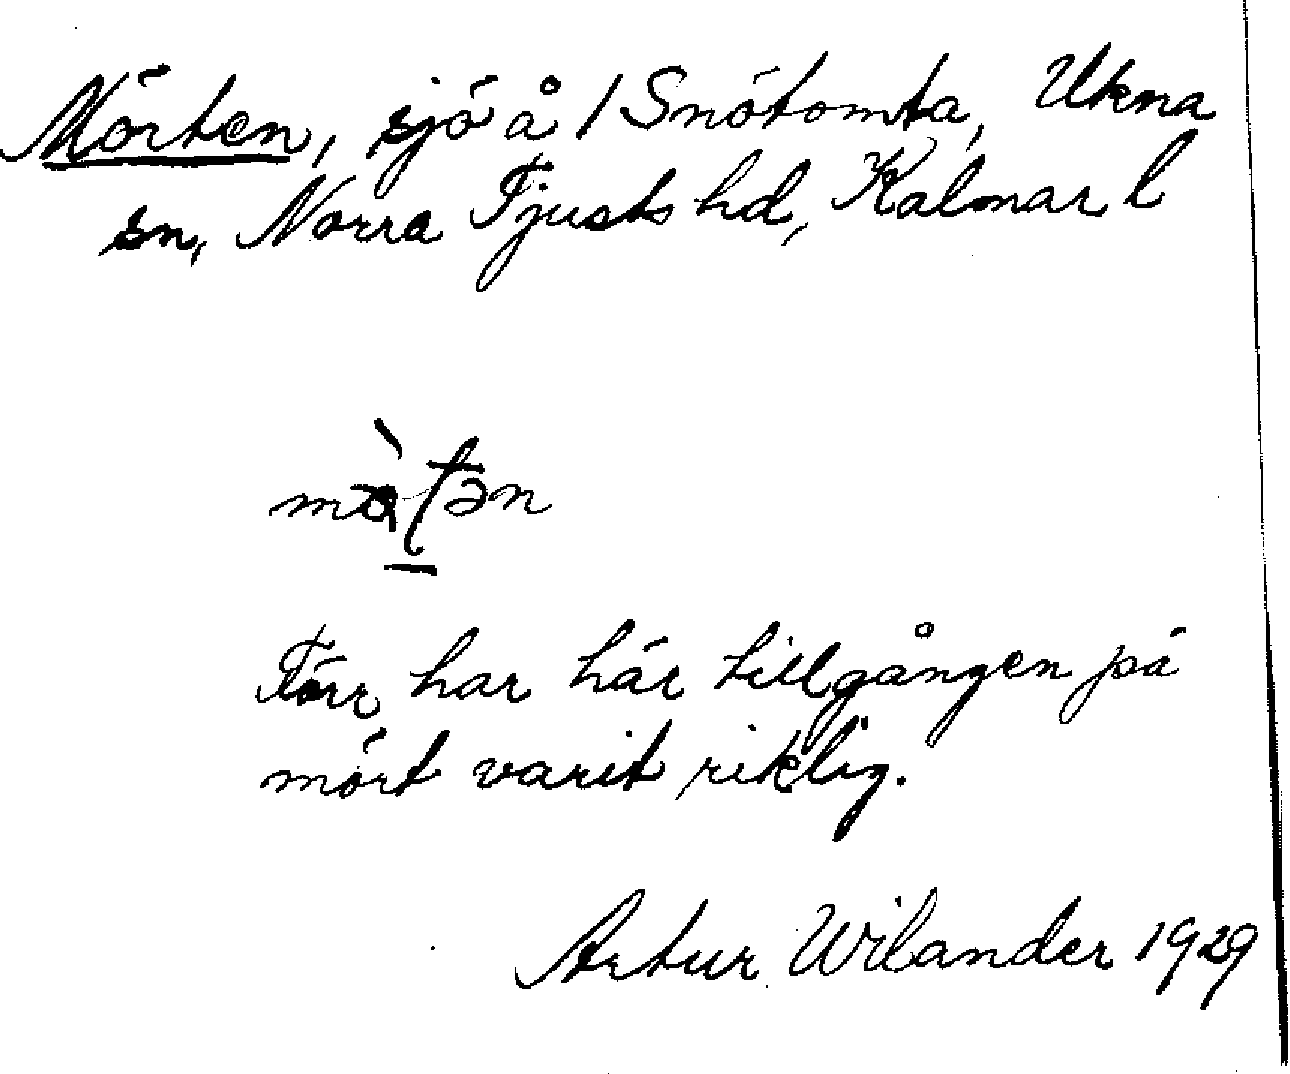 Mörten, sjö å / Snötomta, Ukna
sn, Norra Tjusts hd, Kalmar l
Förr har här tillgången på
mört varit riklig.
Artur Wilander 1929